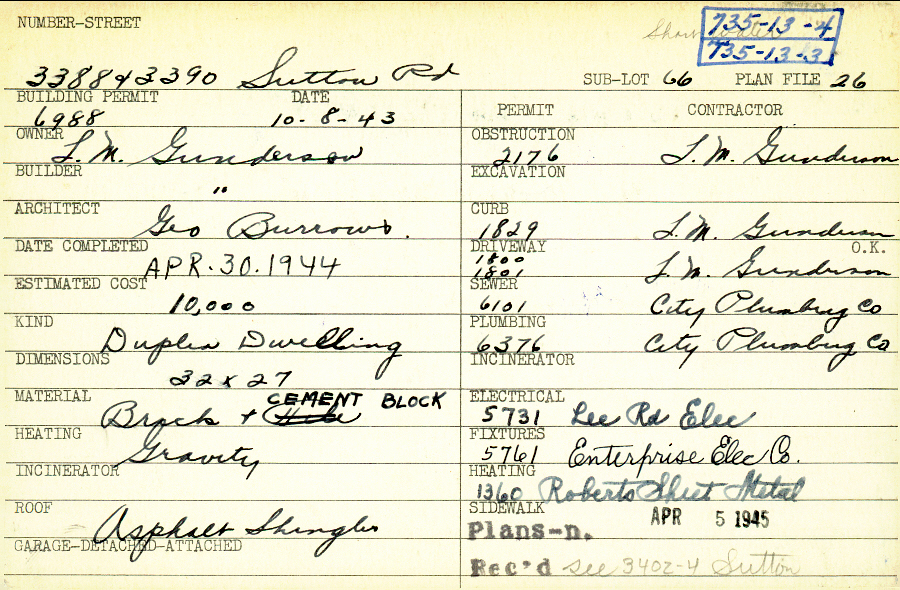 NUMBER-STREET
735-13-4
735-13-3
3388 & 3390 Sutton Rd SUB-LOT 66 PLAN FILE 26
BUILDING PERMIT DATE
6988 10-8-43
OWNER
L. M. Gunderson
BUILDER
"
ARCHITECT
Geo Burrows.
DATE COMPLETED
APR. 30. 1944
ESTIMATED COST
10,000
KIND
Duplex Dwelling
DIMENSIONS
32 x 27
MATERIAL
CEMENT BLOCK
Brick +
HEATING
Gravity
INCINERATOR
ROOF
Asphalt Shingles
GARAGE-DETACHED-ATTACHED
PERMIT CONTRACTOR
OBSTRUCTION
2176 L. M. Gunderson
EXCAVATION
CURB
1829 L. M. Gunderson
DRIVEWAY O.K.
1800
1801 L. M. Gunderson
SEWER
6101 City Plumbing Co
PLUMBING
6376 City Plumbing Co
INCINERATOR
ELECTRICAL
5731 Lee Rd Elec
FIXTURES
5761 Enterprise Elec Co.
HEATING
1360 Roberts Sheet Metal
SIDEWALK
APR 5 1945
Plans-n.
Rec'd see 3402-4 Sutton